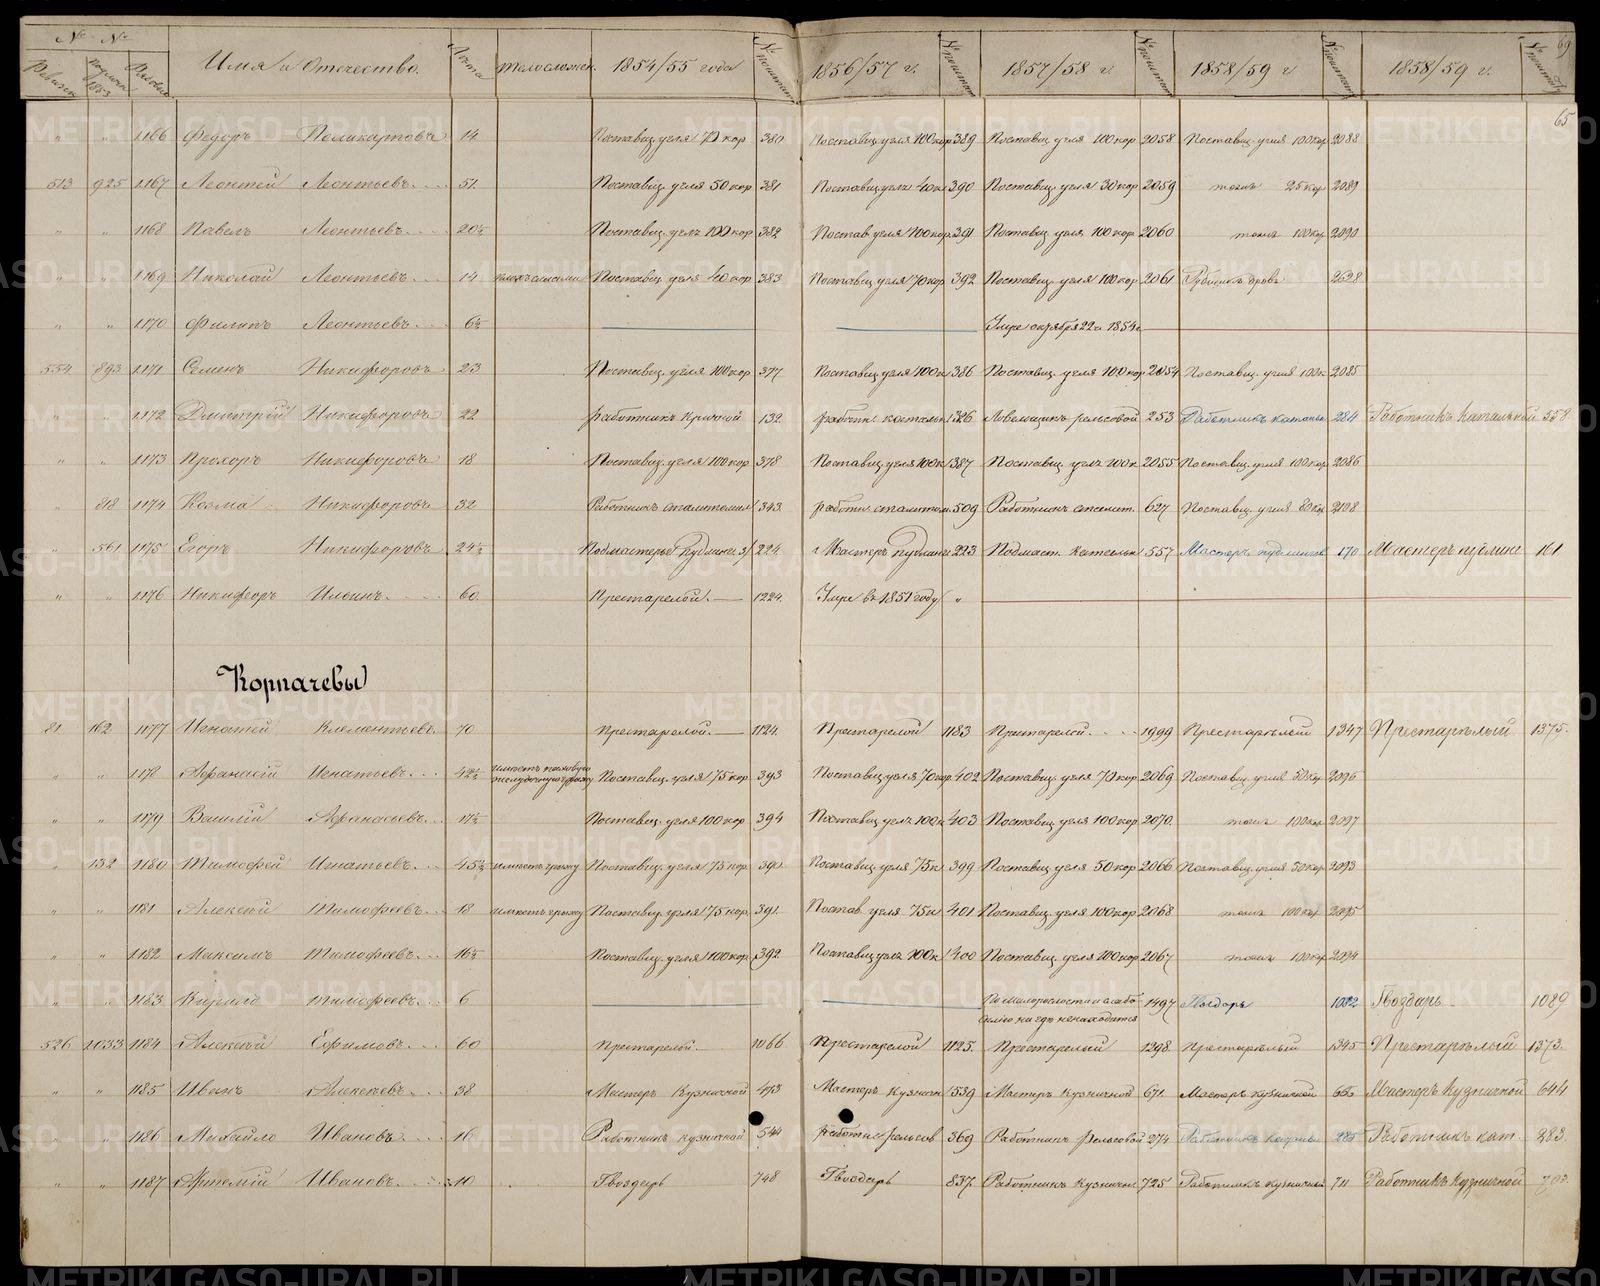 № №
Имя и Отчество. Лѣта Телосложен. 1854/55 года № 1856/57 г. № 1857/58 г. № 1858/59 г № 1858/59 г. № 69
65
" " 1166 Федоръ Поликарповъ 14 Поставщ. угля 70 кор 380 Поставщ. угля 100 кор 389 Поставщ угля 100 кор 2058 Поставщ. угля 100 кор 2088
513 925 1167 Леонтей Леонтьевъ 51. Поставщ. угля 50 кор 381 Поставщ угля 40 к 390 Поставщ. угля 30 кор 2059 тожъ 25 кор 2089
" " 1168 Павелъ Леонтьевъ 20½ Поставщ. угля 100 кор 382 Постав угля 100 кор. 391 Поставщ угля 100 кор 2060 тожъ 100 кор 2090
" " 1169 Николай Леонтьевъ 14 Поставщ угля 40 кор 383 Поставщ угля 70 кор 392 Поставщ. угля 100 кор 2061 Рубщикъ дровъ 2638
" " 1170 Филипъ Леонтьевъ 6½ Умре октября 22 ч. 1854 г.
554 893 1171 Семенъ Никифоровъ 23 Поставщ. угля 100 кор 377 Поставщ угля 100 к 386 Поставщ. угля 100 кор 2054 Поставщ. угля 100 к 2085
" " 1172 Дмитрей Никифоровъ 22 работникъ кричной 132. работн. катальн 126 Ловельщикъ рельсовой 253 Работникъ катальн 284 Работникъ катальной 558
" " 1173 Прохоръ Никифоровъ 18 Поставщ. угля 100 кор 378 Поставщ угля 100 к 387 Поставщ. угля 100 к 2055 Поставщ. угля 100 кор 2086
" 818 1174 Козма Никифоровъ 32 Работникъ 343 работн. 509 Работникъ 627 Поставщ. угля 80 кор 2108
" 561 1175 Егоръ Никифоровъ 24½ Подмастерье Пудлинг. 224. Мастеръ Пудлинг 223 Подмаст. катальн 557 Мастеръ пудлингов 170 Мастеръ пудлинг 161
" " 1176 Никифоръ Ильинъ 60 Престарелой. 1224. Умре въ 1851 году "
Корпачевы
81 162 1177 Игнатей Клементьевъ 70 Престарелой. 1124. Престарелой 1183 Престарелой 1999 Престарѣлый 1347 Престарѣлый 1375.
" " 1178 Афанасій Игнатьевъ 42½ имѣетъ паховую грыжу Поставщ. угля 75 кор 393 Поставщ угля 70 кор 402 Поставщ угля 70 кор. 2069 Поставщ. угля 50 кор 2096
" " 1179 Василій Афанасьевъ 17½ Поставщ. угля 100 кор 394 Поставщ угля 100 к 403 Поставщ. угля 100 кор 2070. тожъ 100 кор 2097
" 132 1180 Тимофей Игнатьевъ 45½ имѣетъ грыжу Поставщ. угля 75 кор. 390. Поставщ угля 75 к 399 Поставщ угля 50 кор 2066 Поставщ. угля 50 кор 2093
" " 1181 Алексѣй Тимофеевъ 18 имѣетъ грыжу Поставщ угля 75 кор. 391. Постав угля 75 к 401 Поставщ угля 100 кор 2068 тожъ 100 кор 2095
" " 1182 Максимъ Тимофеевъ 16½ Поставщ. угля 100 кор. 392. Поставщ угля 100 к 400 Поставщ угля 100 кор 2067 тожъ 100 кор 2094
" " 1183 Кирило Тимофеевъ 6 По малорослости и слабо силію нигдѣ ненаходится 1497 Гвоздарь 1082 Гвоздарь 1089
526 1033 1184 Алексѣй Ефимовъ 60 Престарелой. 1066 Престарелой 1125. Престарелый 1298. Престарѣлый 1345 Престарѣлый 1373.
" " 1185 Иванъ Алексѣевъ 38 Мастеръ Кузничной 473 Мастеръ Кузничн 539 Мастеръ кузничной 671. Мастеръ кузничной Мастеръ Кузничной 644
" " 1186 Михайло Ивановъ 16. Работникъ кузничной 544 работн. рельсов 369 Работникъ рельсовой 274 Работникъ 285 Работникъ кат. 283.
" " 1187 Артемій Ивановъ 10 Гвоздарь 748 Гвоздарь 837. Работникъ Кузничн. 725 Работникъ кузничный 711 Работникъ Кузничной
METRIKI.GASO-URAL.RU